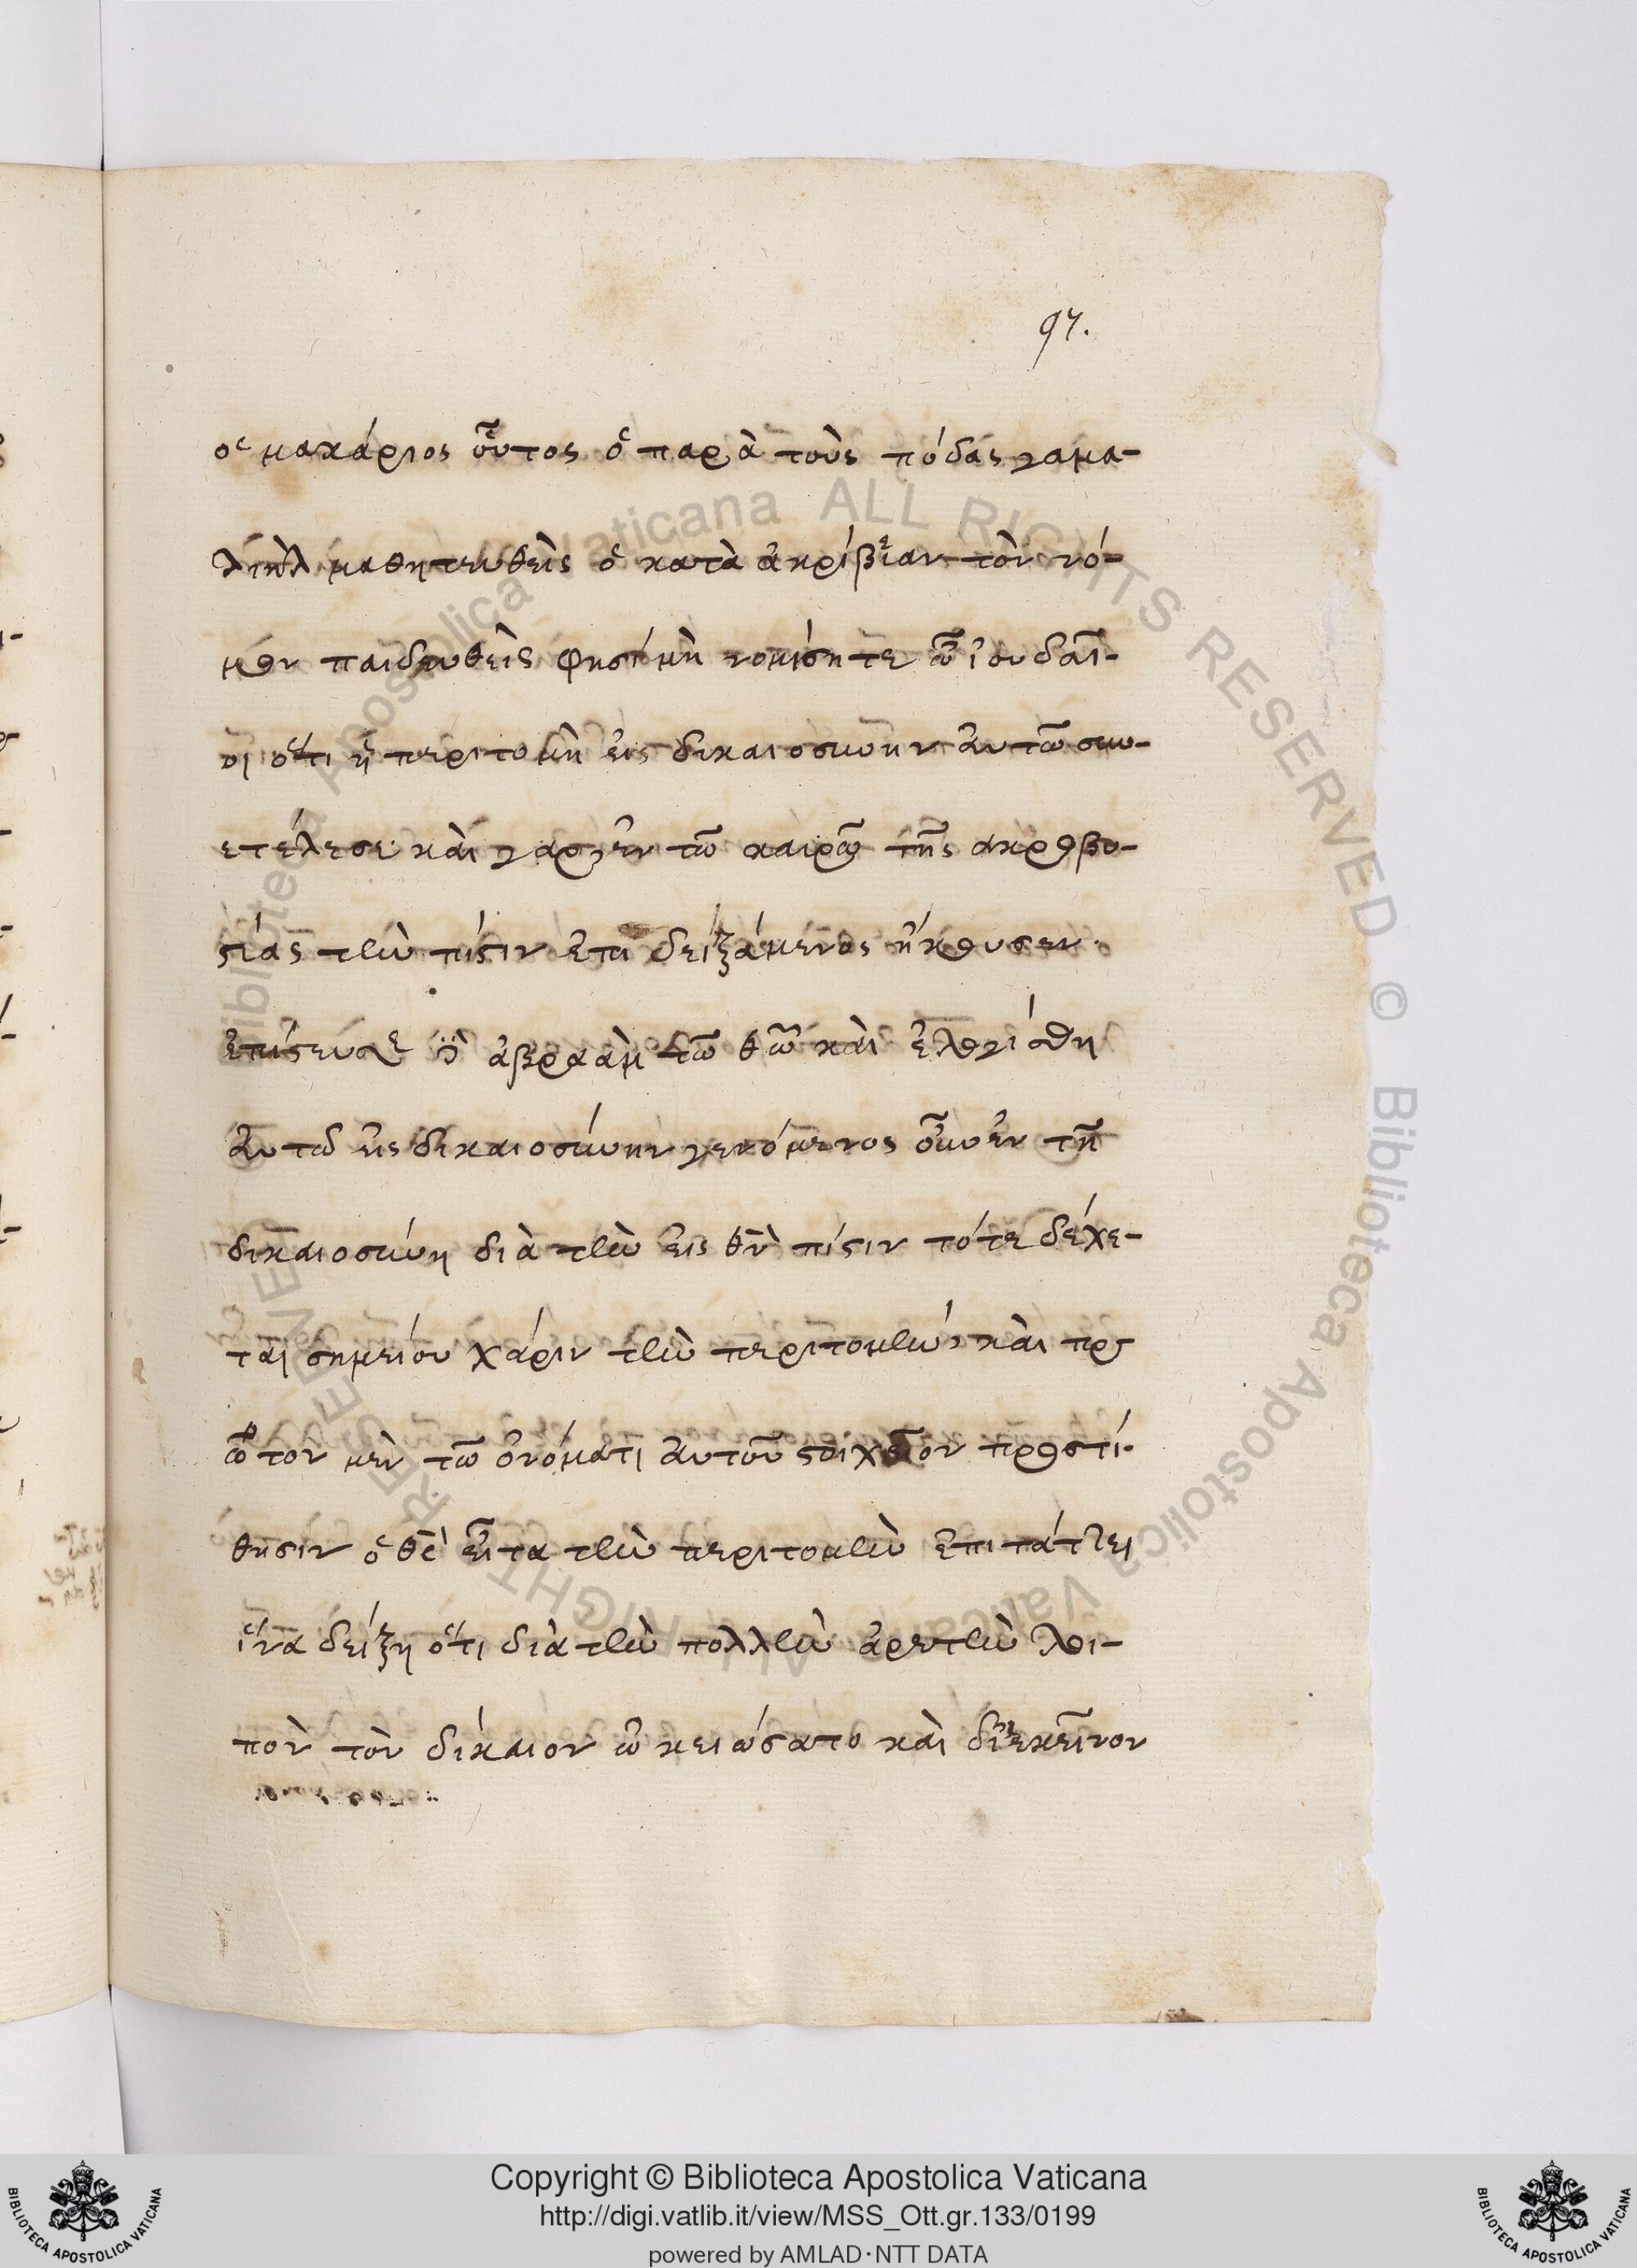 97.
ὁ μακάριος οὗτος ὁ παρὰ τοὺς πόδας γαμα-
λιὴλ μαθητευθεὶς ὁ κατὰ ἀκρίβειαν τὸν νό-
μον παιδευθεὶς φησὶ μὴ νομίσητε ὦ ἰουδαῖ-
οι ὅτι ἡ περιτομὴ εἰς δικαιοσύνην αὐτῶ συν-
ετέλεσε καὶ γὰρ ἐν τῶ καιρῶ τῆς ἀκροβυ-
στίας τὴν πίστιν ἐπιδειξάμενος ἤκουσεν.
ἐπίστευσε δὲ ἀβραὰμ τῶ θῶ καὶ ἐλογίσθη
αὐτῶ εἰς δικαιοσύνην γενόμενος οὖν ἐν τῆ
δικαιοσύνη διὰ τὴν εἰς θν πίστιν τότε δέχε-
ται σημείου χάριν τὴν περιτομὴν, καὶ πρ
ῶτον μὲν τῶ ὀνόματι αὐτοῦ στοιχεῖον προστί-
θησιν ὁ θς εἶτα τὴν περιτομὴν ἐπιτάττει
ἵνα δείξη ὅτι διὰ τὴν πολλὴν ἀρετὴν λοι-
πὸν τὸν δίκαιον ὠκειώσατο καὶ δι' ἐκεῖνον
Copyright © Biblioteca Apostolica Vaticana
http://digi.vatlib.it/view/MSS_Ott.gr.133/0199
powered by AMLAD·NTT DATA
BIBLIOTECA APOSTOLICA VATICANA
BIBLIOTECA APOSTOLICA VATICANA
Biblioteca Apostolica Vaticana ALL RIGHTS RESERVED © Biblioteca Apostolica Vaticana ALL RIGHTS RESERVED